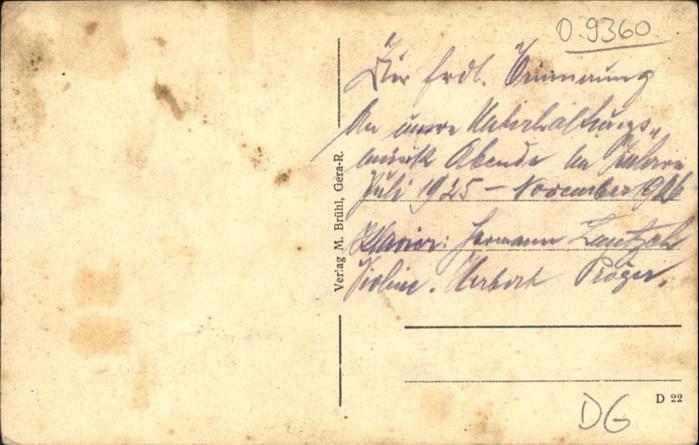 O.9360.
Zur frdl. Erinnerung
An unsere Unterhaltungs-
musik Abende im
Juli 1925 – November 1926
Klavier: Hermann
Violine. Herbert Pröger.
Verlag M. Brühl, Gera-R.
D 22
DG